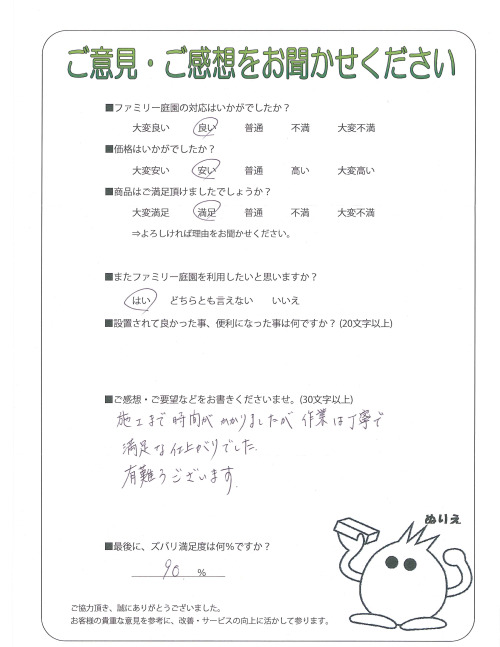 ご意見・ご感想をお聞かせください
■ファミリー庭園の対応はいかがでしたか？
大変良い 良い 普通 不満 大変不満
■価格はいかがでしたか？
大変安い 安い 普通 高い 大変高い
■商品はご満足頂けましたでしょうか？
大変満足 満足 普通 不満 大変不満
⇒よろしければ理由をお聞かせください。
■またファミリー庭園を利用したいと思いますか？
はい どちらとも言えない いいえ
■設置されて良かった事、便利になった事は何ですか？(20文字以上)
■ご感想・ご要望などをお書きくださいませ。(30文字以上)
施工まで時間がかかりましたが作業は丁寧で
満足な仕上がりでした.
有難うございます.
ぬりえ
■最後に、ズバリ満足度は何％ですか？
90 ％
ご協力頂き、誠にありがとうございました。
お客様の貴重な意見を参考に、改善・サービスの向上に活かして参ります。